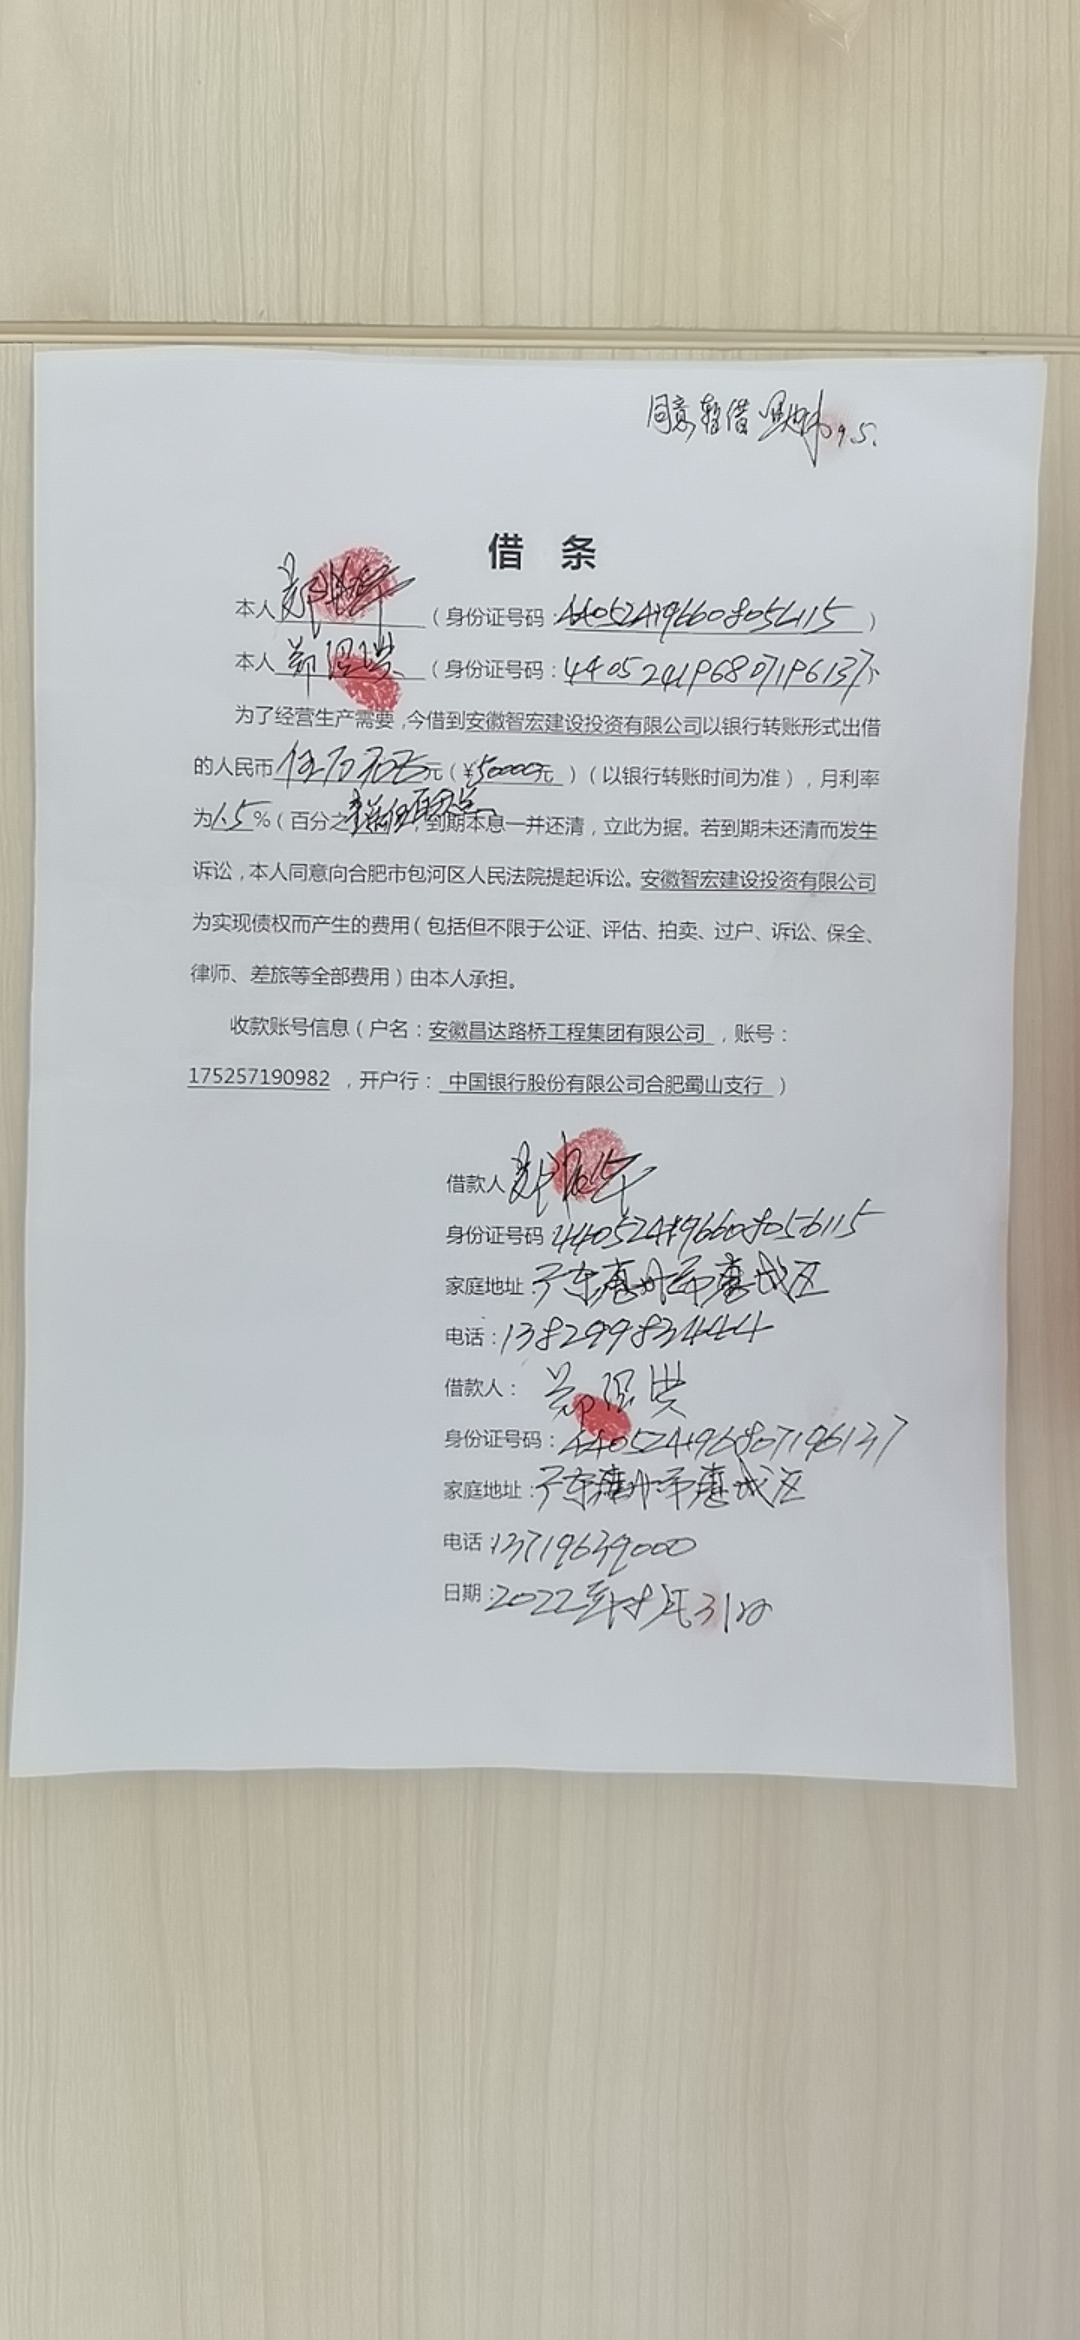 同意暂借 9.5.
借 条
本人 （身份证号码：）
本人郑 洪（身份证号码：440524196807196137）
为了经营生产需要，今借到安徽智宏建设投资有限公司以银行转账形式出借
的人民币伍万元正元（¥50000元）（以银行转账时间为准），月利率
为1.5%（百分之 ，到期本息一并还清，立此为据。若到期未还清而发生
诉讼，本人同意向合肥市包河区人民法院提起诉讼。安徽智宏建设投资有限公司
为实现债权而产生的费用（包括但不限于公证、评估、拍卖、过户、诉讼、保全、
律师、差旅等全部费用）由本人承担。
收款账号信息（户名：安徽昌达路桥工程集团有限公司，账号：
175257190982，开户行：中国银行股份有限公司合肥蜀山支行）
借款人
身份证号码
家庭地址：广东惠州市惠城区
电话：13829983444
借款人：郑 洪
身份证号码：440524196807196137
家庭地址：广东惠州市惠城区
电话：13719639000
日期：2022年8月31日